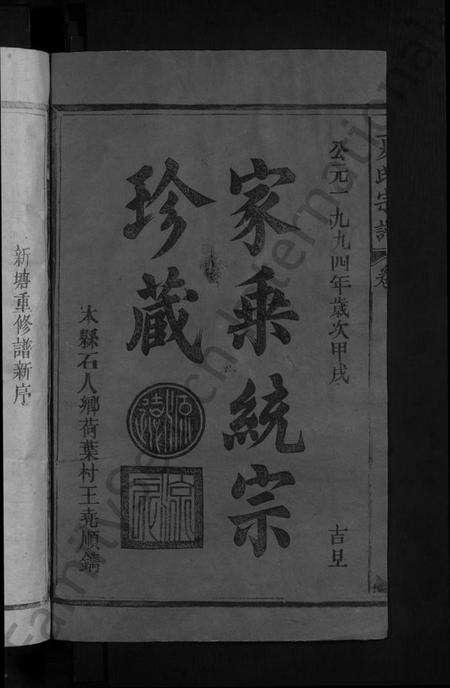 公元一九九四年歲次甲戌 吉旦
家乘統宗
珍藏
本縣石人鄉荷葉村王堯順鐫
新塘重修譜新序
氏宗譜 卷